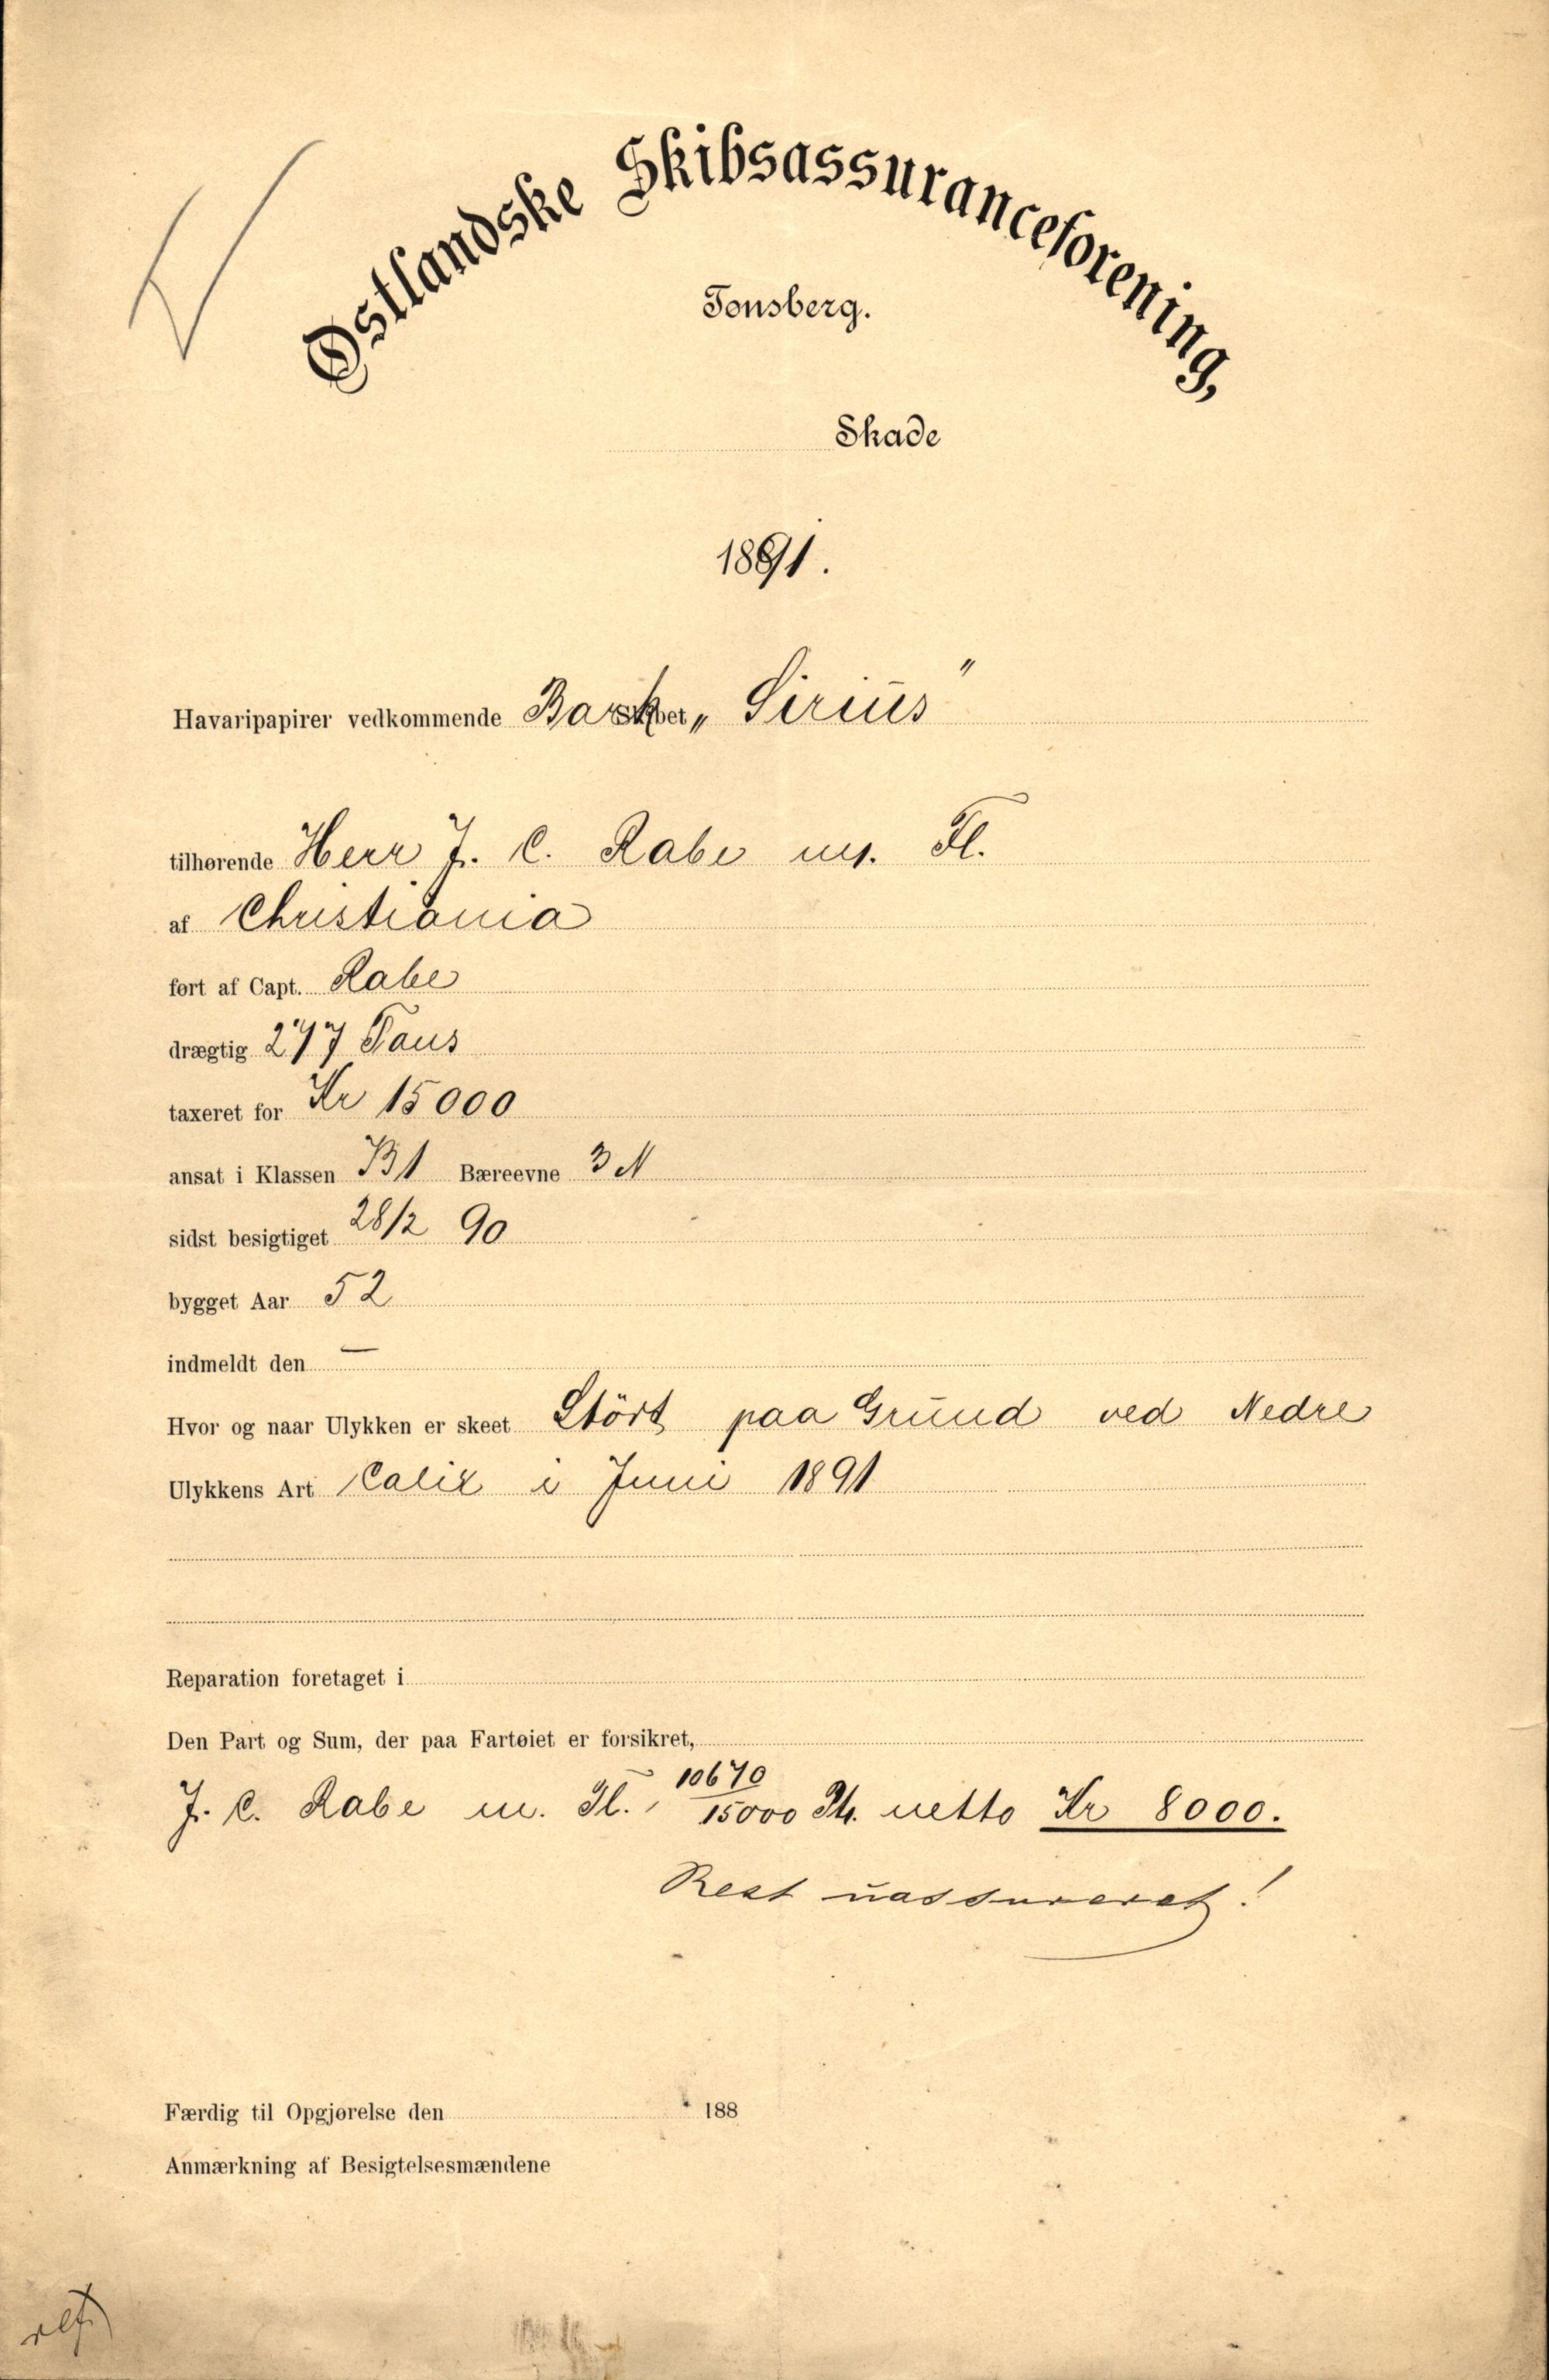 Østlandske Skibsassuranceforening,
Tønsberg.
Skade
1891.
Havaripapirer vedkommende Bark Skibet „Sirius"
tilhørende Herr J. C. Rabe m. Fl.
af Christiania
ført af Capt. Rabe
drægtig 277 Tons
taxeret for Kr 15000
ansat i Klassen B1 Bæreevne 3 N
sidst besigtiget 28/2 90
bygget Aar 52
indmeldt den —
Hvor og naar Ulykken er skeet Stört paa Grund ved Nedre
Ulykkens Art Calix i Juni 1891
Reparation foretaget i
Den Part og Sum, der paa Fartøiet er forsikret,
J. C. Rabe m. Fl., 10670/15000 Pt. netto Kr 8000.
Rest uassureret!
Færdig til Opgjørelse den 188
Anmærkning af Besigtelsesmændene